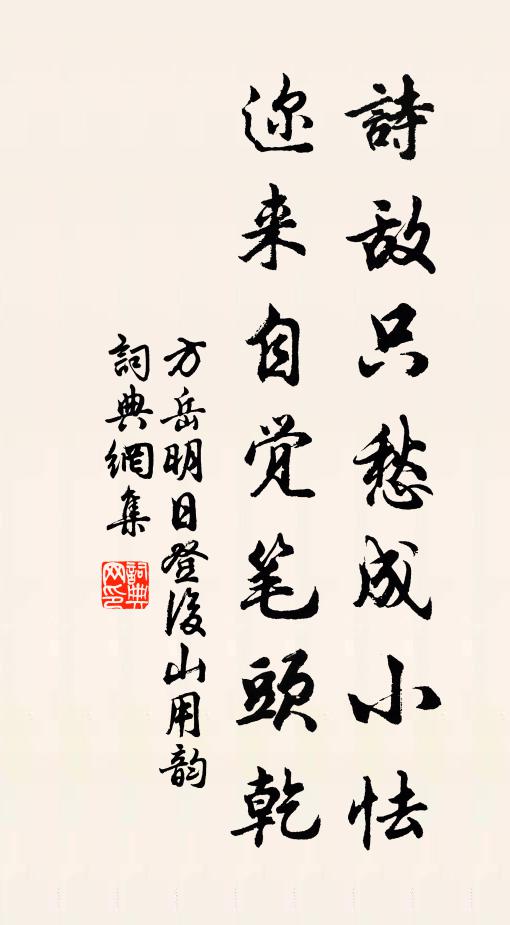 詩敌只愁成小怯
迩来自觉笔頭乾
方岳明日登後山用韵
詞典網集
詞典网印